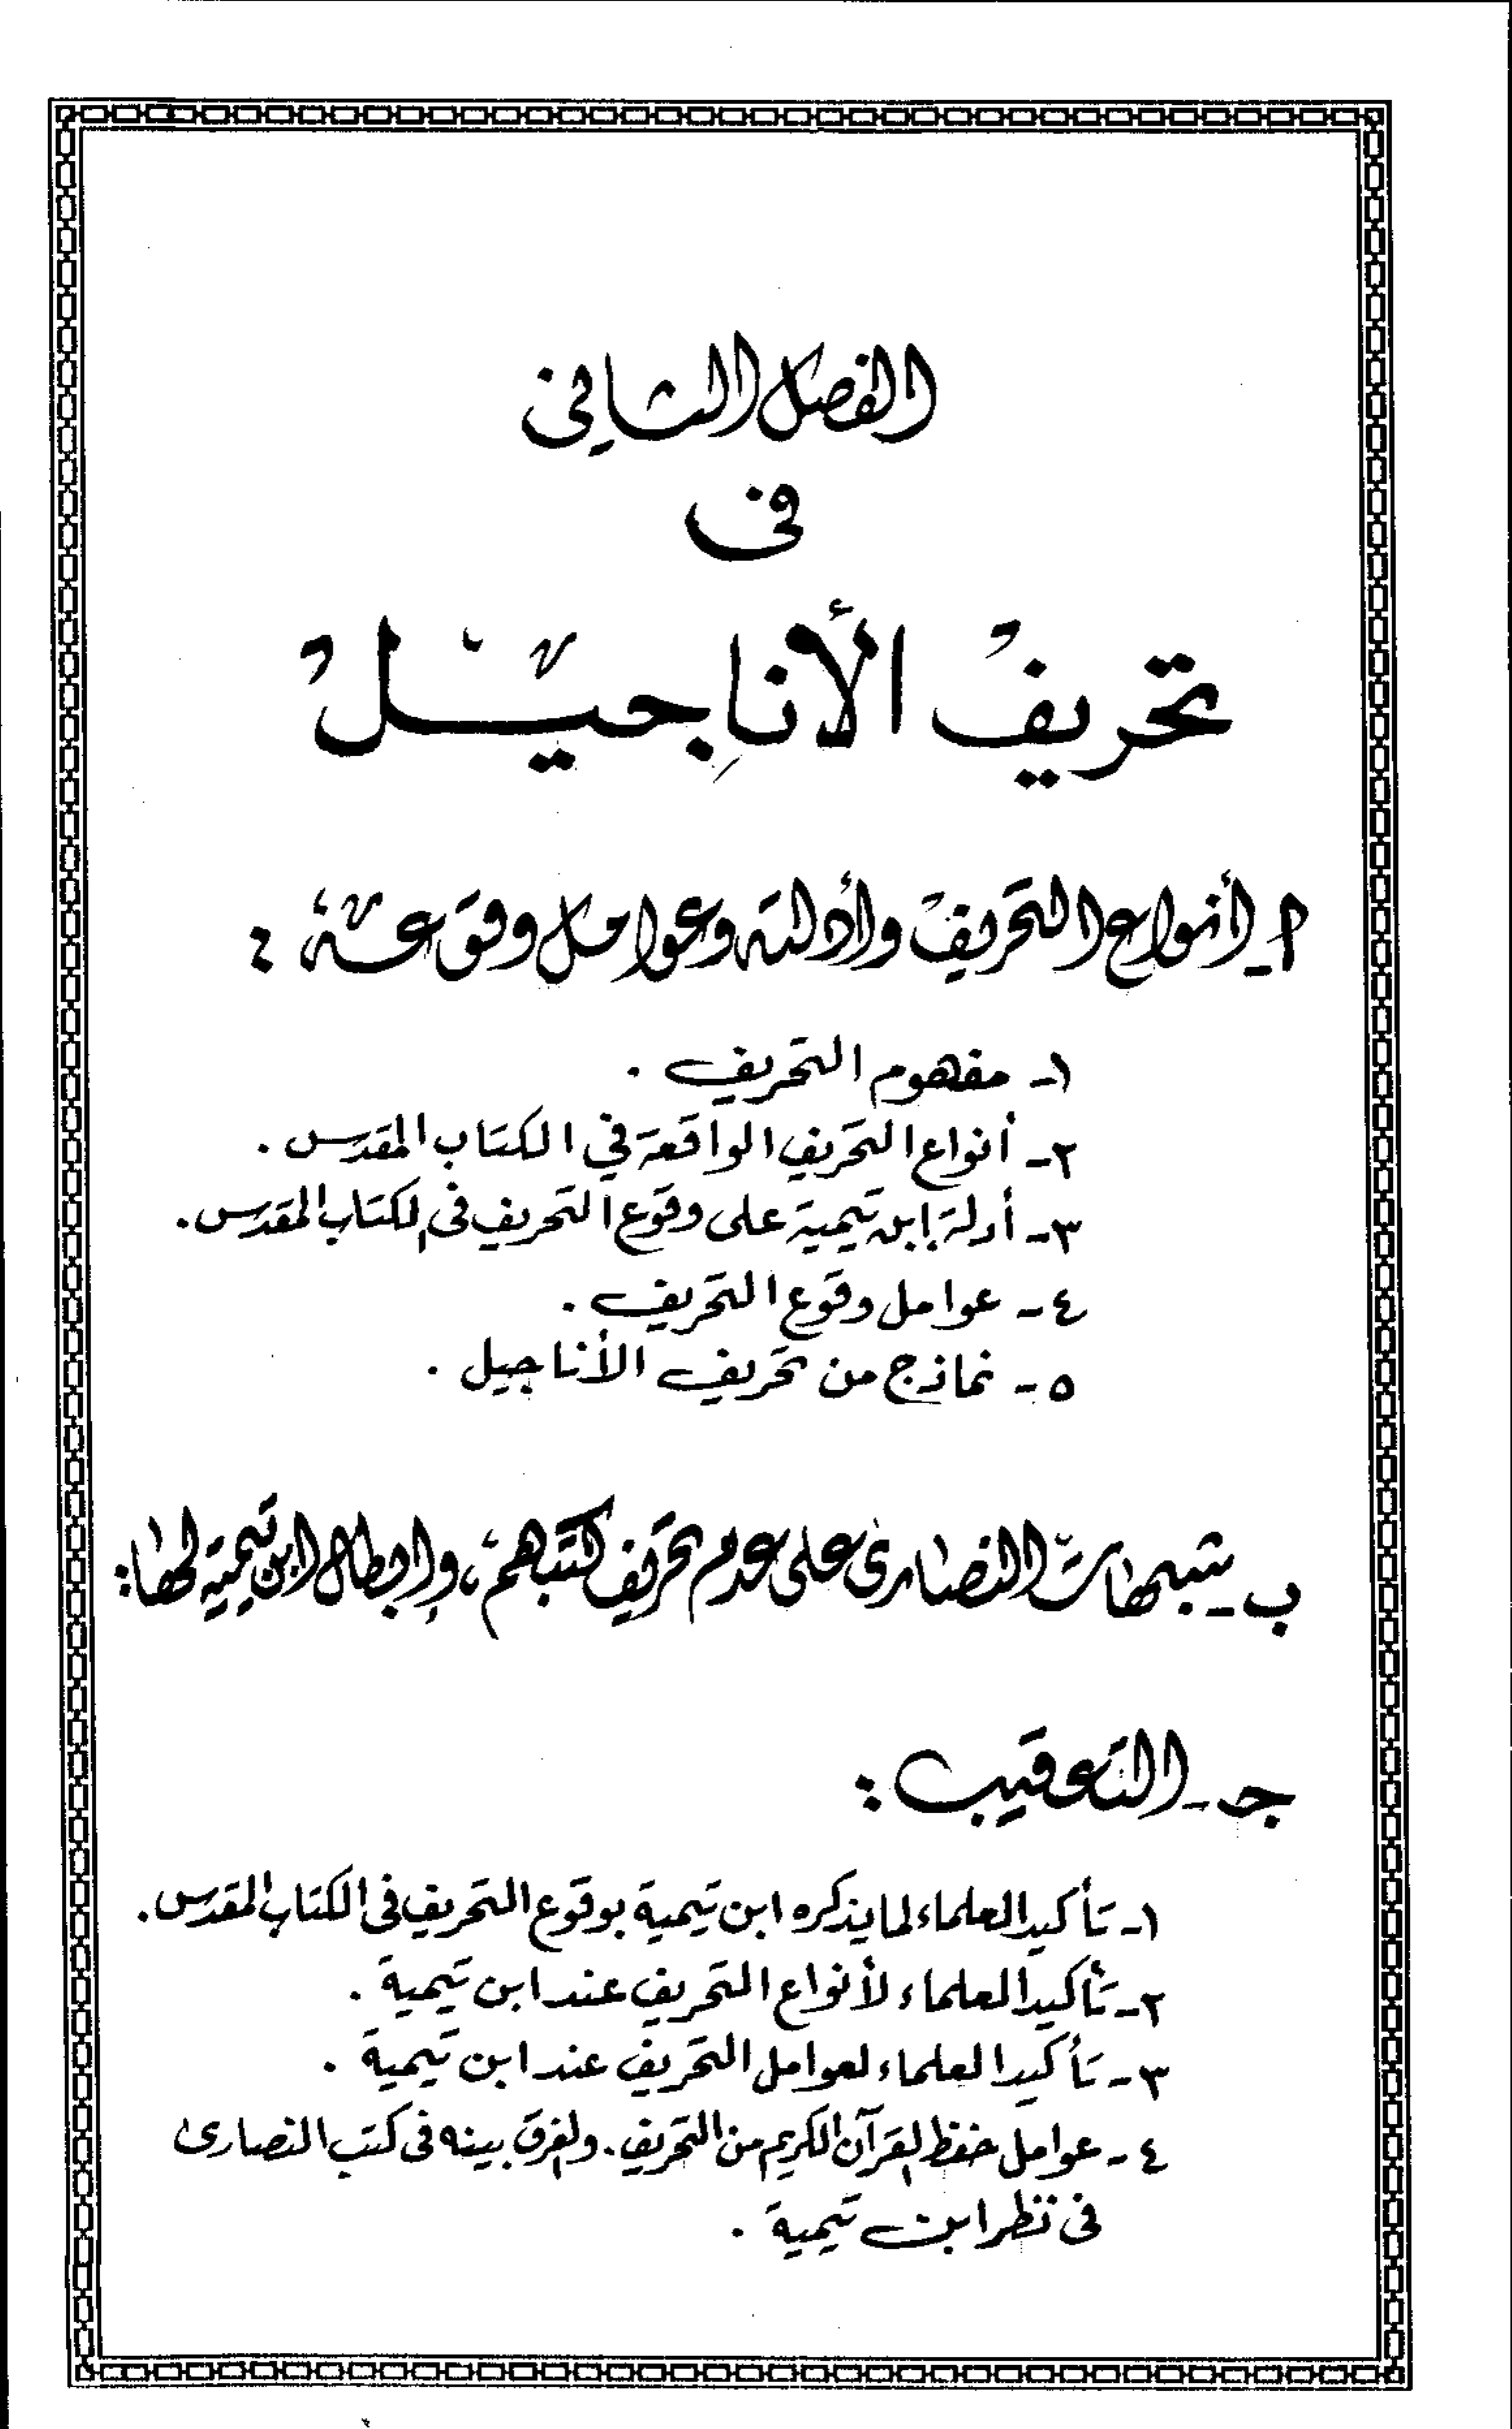 الفصل الثاني
فى
تحريف الأناجيل
أ - أنواع التحريف وأدلته وعوامل وقوعه :
١- مفهوم التحريف .
٢- أنواع التحريف الواقعة في الكتاب المقدس .
٣- أدلة إبن تيمية على وقوع التحريف فى الكتاب المقدس .
٤ - عوامل وقوع التحريف .
٥ - نماذج من تحريف الأناجيل .
ب - شبهات النصارى على عدم تحريف كتبهم ، وإبطال ابن تيمية لها :
جـ - التعقيب :
١- تأكيد العلماء لما يذكره ابن تيمية بوقوع التحريف فى الكتاب المقدس .
٢- تأكيد العلماء لأنواع التحريف عند ابن تيمية .
٣- تأكيد العلماء لعوامل التحريف عند ابن تيمية .
٤ - عوامل حفظ القرآن الكريم من التحريف . والفرق بينه فى كتب النصارى
فى نظر ابن تيمية .